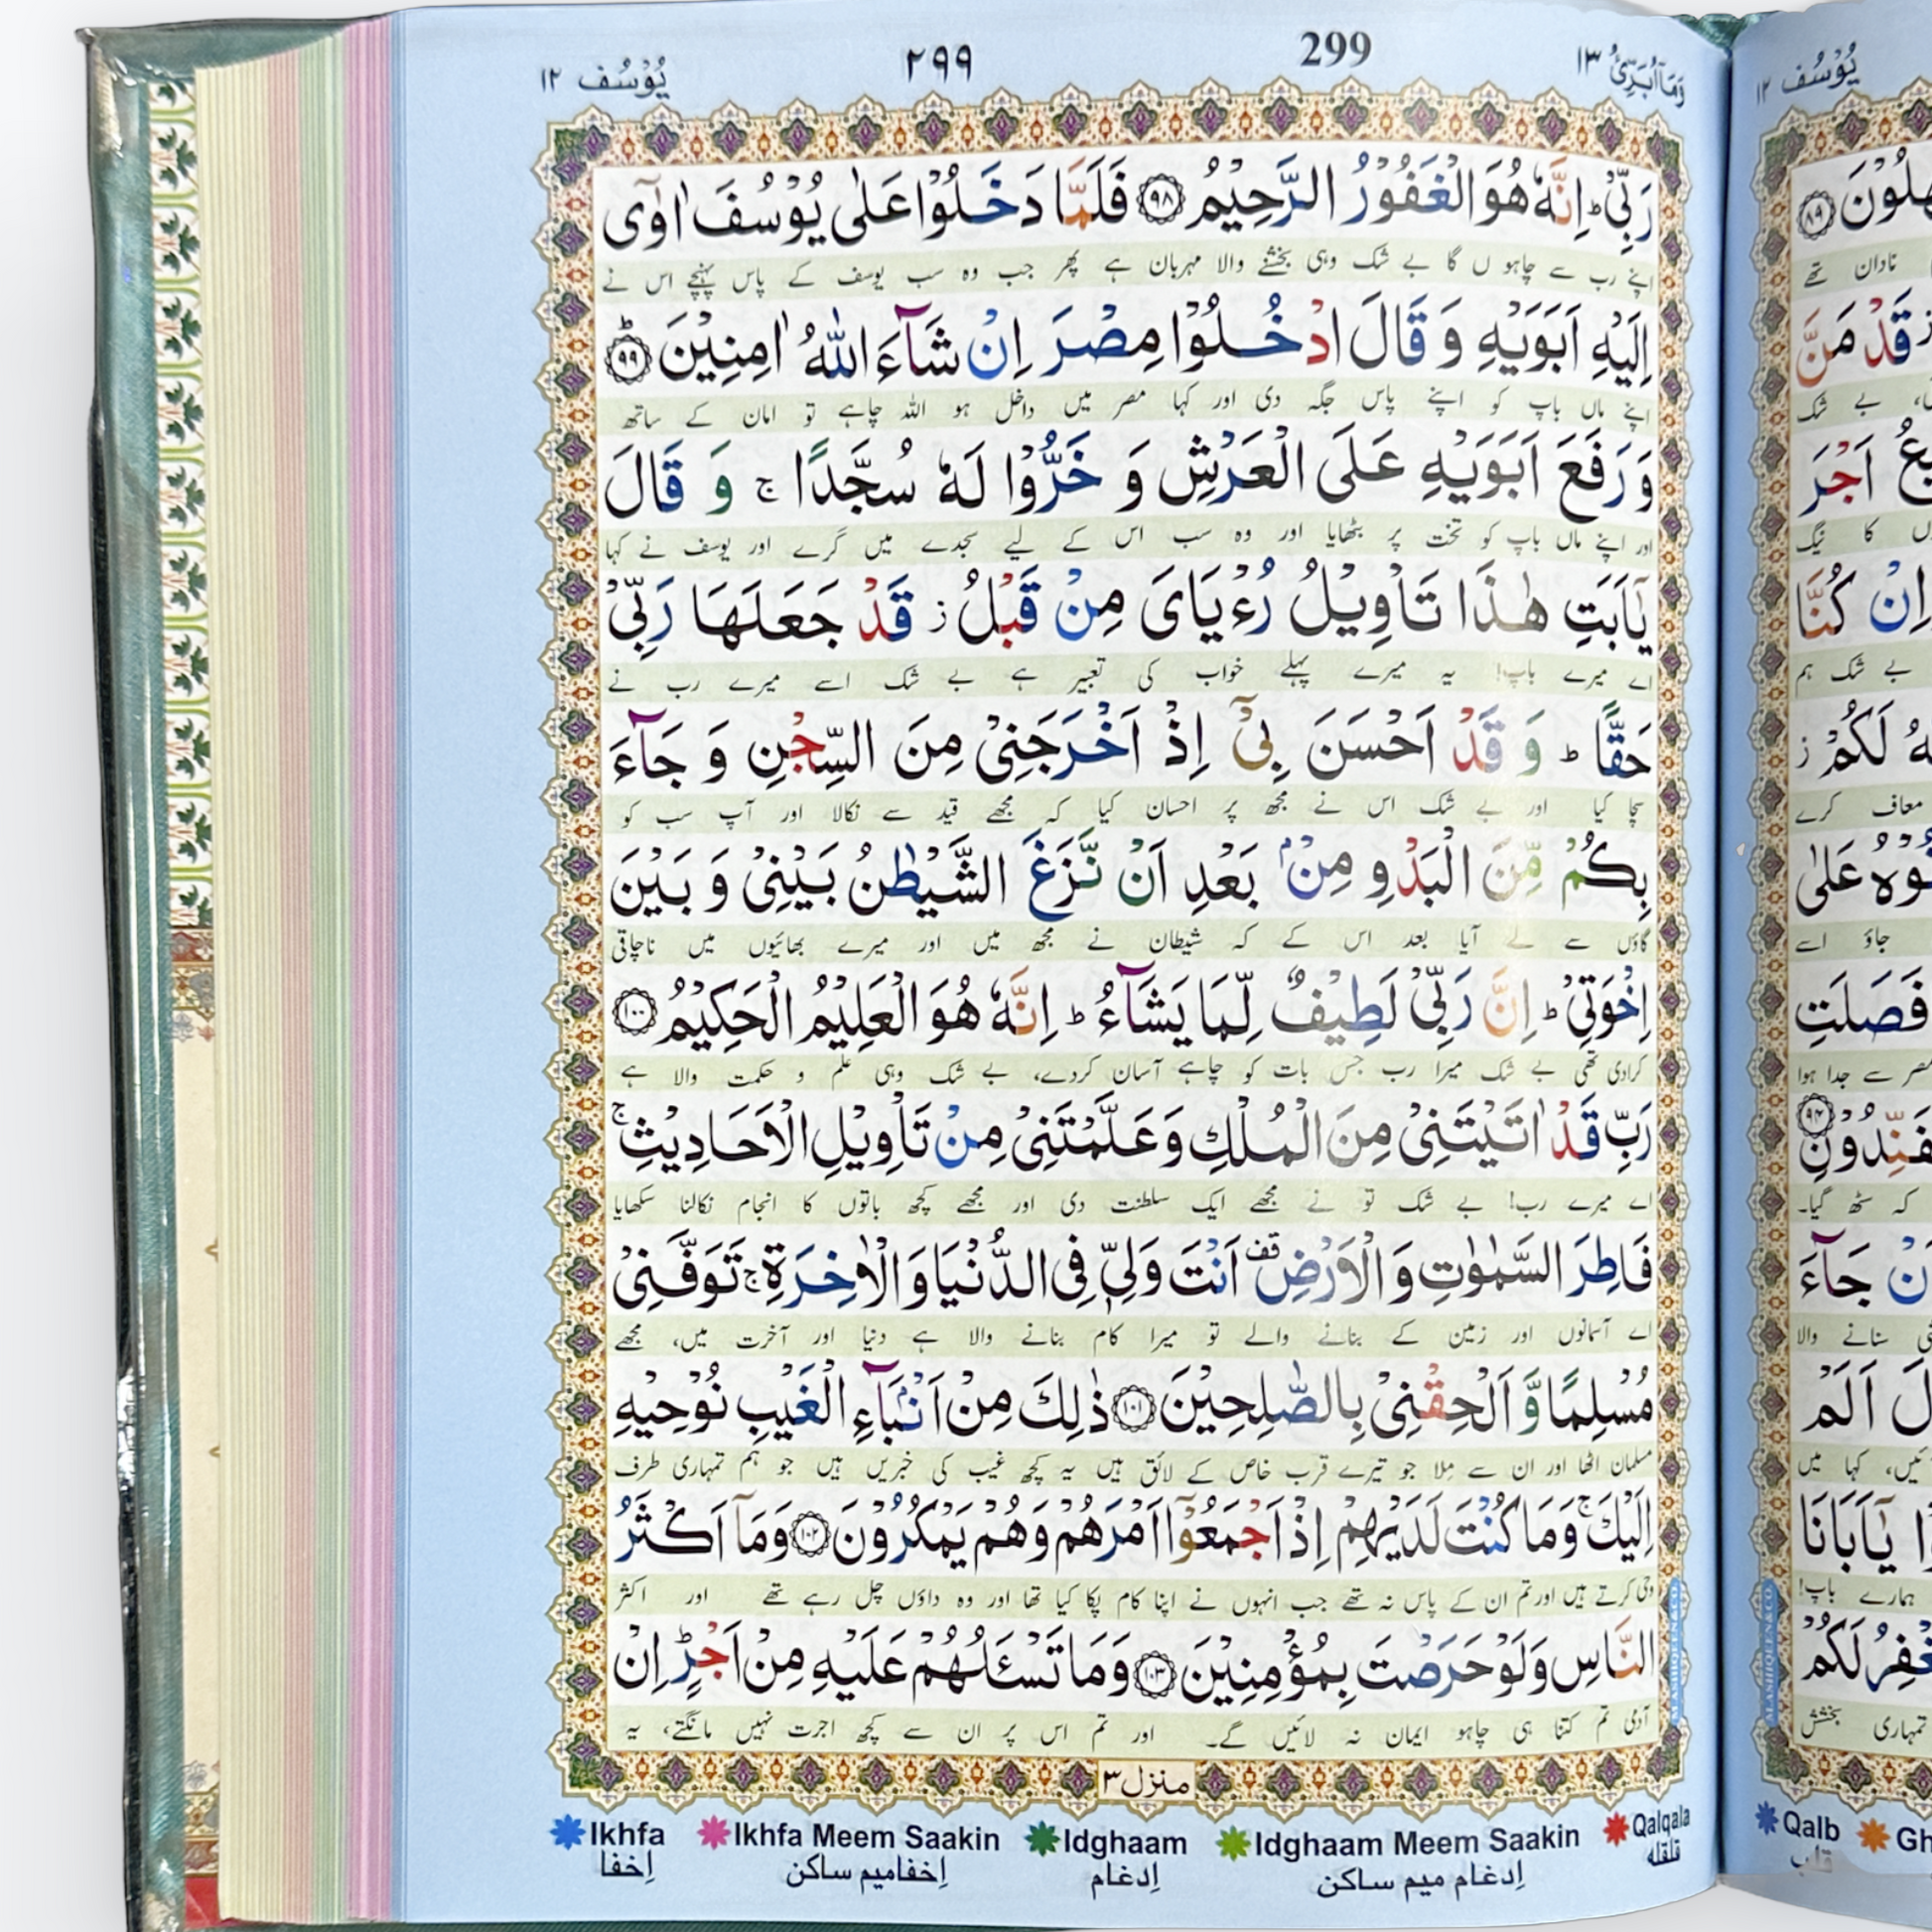 وَمَاۤ اُبَرِّئُ ١٣ 299 ٢٩٩ يُوْسُف ١٢
رَبِّیْ ؕ اِنَّهٗ هُوَ الْغَفُوْرُ الرَّحِیْمُ ﴿٩٨﴾ فَلَمَّا دَخَلُوْا عَلٰی یُوْسُفَ اٰوٰۤی
اپنے رب سے چاہو ں گا بے شک وہی بخشنے والا مہربان ہے پھر جب وہ سب یوسف کے پاس پہنچے اس نے
اِلَیْهِ اَبَوَیْهِ وَ قَالَ ادْخُلُوْا مِصْرَ اِنْ شَآءَ اللّٰهُ اٰمِنِیْنَ ﴿٩٩﴾ؕ
اپنے ماں باپ کو اپنے پاس جگہ دی اور کہا مصر میں داخل ہو اللہ چاہے تو امان کے ساتھ
وَ رَفَعَ اَبَوَیْهِ عَلَی الْعَرْشِ وَ خَرُّوْا لَهٗ سُجَّدًا ۚ وَ قَالَ
اور اپنے ماں باپ کو تخت پر بٹھایا اور وہ سب اس کے لیے سجدے میں گرے اور یوسف نے کہا
یٰۤاَبَتِ هٰذَا تَاْوِیْلُ رُءْیَایَ مِنْ قَبْلُ ؗ قَدْ جَعَلَهَا رَبِّیْ
اے میرے باپ! یہ میرے پہلے خواب کی تعبیر ہے بے شک اسے میرے رب نے
حَقًّا ؕ وَ قَدْ اَحْسَنَ بِیْۤ اِذْ اَخْرَجَنِیْ مِنَ السِّجْنِ وَ جَآءَ
سچا کیا اور بے شک اس نے مجھ پر احسان کیا کہ مجھے قید سے نکالا اور آپ سب کو
بِكُمْ مِّنَ الْبَدْوِ مِنْۢ بَعْدِ اَنْ نَّزَغَ الشَّیْطٰنُ بَیْنِیْ وَ بَیْنَ
گاؤں سے لے آیا بعد اس کے کہ شیطان نے مجھ میں اور میرے بھائیوں میں ناچاقی
اِخْوَتِیْ ؕ اِنَّ رَبِّیْ لَطِیْفٌ لِّمَا یَشَآءُ ؕ اِنَّهٗ هُوَ الْعَلِیْمُ الْحَكِیْمُ ﴿١٠٠﴾
کرادی تھی بے شک میرا رب جس بات کو چاہے آسان کردے، بے شک وہی علم و حکمت والا ہے
رَبِّ قَدْ اٰتَیْتَنِیْ مِنَ الْمُلْكِ وَ عَلَّمْتَنِیْ مِنْ تَاْوِیْلِ الْاَحَادِیْثِ ۚ
اے میرے رب! بے شک تو نے مجھے ایک سلطنت دی اور مجھے کچھ باتوں کا انجام نکالنا سکھایا
فَاطِرَ السَّمٰوٰتِ وَ الْاَرْضِ قف اَنْتَ وَلِیّٖ فِی الدُّنْیَا وَ الْاٰخِرَةِ ۚ تَوَفَّنِیْ
اے آسمانوں اور زمین کے بنانے والے تو میرا کام بنانے والا ہے دنیا اور آخرت میں، مجھے
مُسْلِمًا وَّ اَلْحِقْنِیْ بِالصّٰلِحِیْنَ ﴿١٠١﴾ ذٰلِكَ مِنْ اَنْۢبَآءِ الْغَیْبِ نُوْحِیْهِ
مسلمان اٹھا اور ان سے ملا جو تیرے قرب خاص کے لائق ہیں یہ کچھ غیب کی خبریں ہیں جو ہم تمہاری طرف
اِلَیْكَ ۚ وَ مَا كُنْتَ لَدَیْهِمْ اِذْ اَجْمَعُوْۤا اَمْرَهُمْ وَ هُمْ یَمْكُرُوْنَ ﴿١٠٢﴾ وَ مَاۤ اَكْثَرُ
وحی کرتے ہیں اور تم ان کے پاس نہ تھے جب انہوں نے اپنا کام پکا کیا تھا اور وہ داؤں چل رہے تھے اور اکثر
النَّاسِ وَ لَوْ حَرَصْتَ بِمُؤْمِنِیْنَ ﴿١٠٣﴾ وَ مَا تَسْـَٔلُهُمْ عَلَیْهِ مِنْ اَجْرٍ ؕ اِنْ
آدمی تم کتنا ہی چاہو ایمان نہ لائیں گے۔ اور تم اس پر ان سے کچھ اجرت نہیں مانگتے، یہ
منزل ٣
Ikhfa Ikhfa Meem Saakin Idghaam Idghaam Meem Saakin Qalqala
اِخفا اِخفامیم ساکن اِدغام اِدغام میم ساکن قلقله
یُوْسُف ١٢
﴿٨٩﴾
نادان تھے
قَدْ مَنَّ
بے شک
اَجْرَ
کا نیگ
اِنْ كُنَّا
بے شک ہم
لَكُمْ ؗ
معاف کرے
عَلٰی
جاؤ اسے
فَصَلَتِ
مصر سے جدا ہوا
﴿٩٤﴾
کہ سٹھ گیا۔
جَآءَ
سنانے والا
اَلَمْ
کہا میں
یٰۤاَبَانَا
ہمارے باپ!
لَكُمْ
تمہاری بخشش
Qalb
قلب